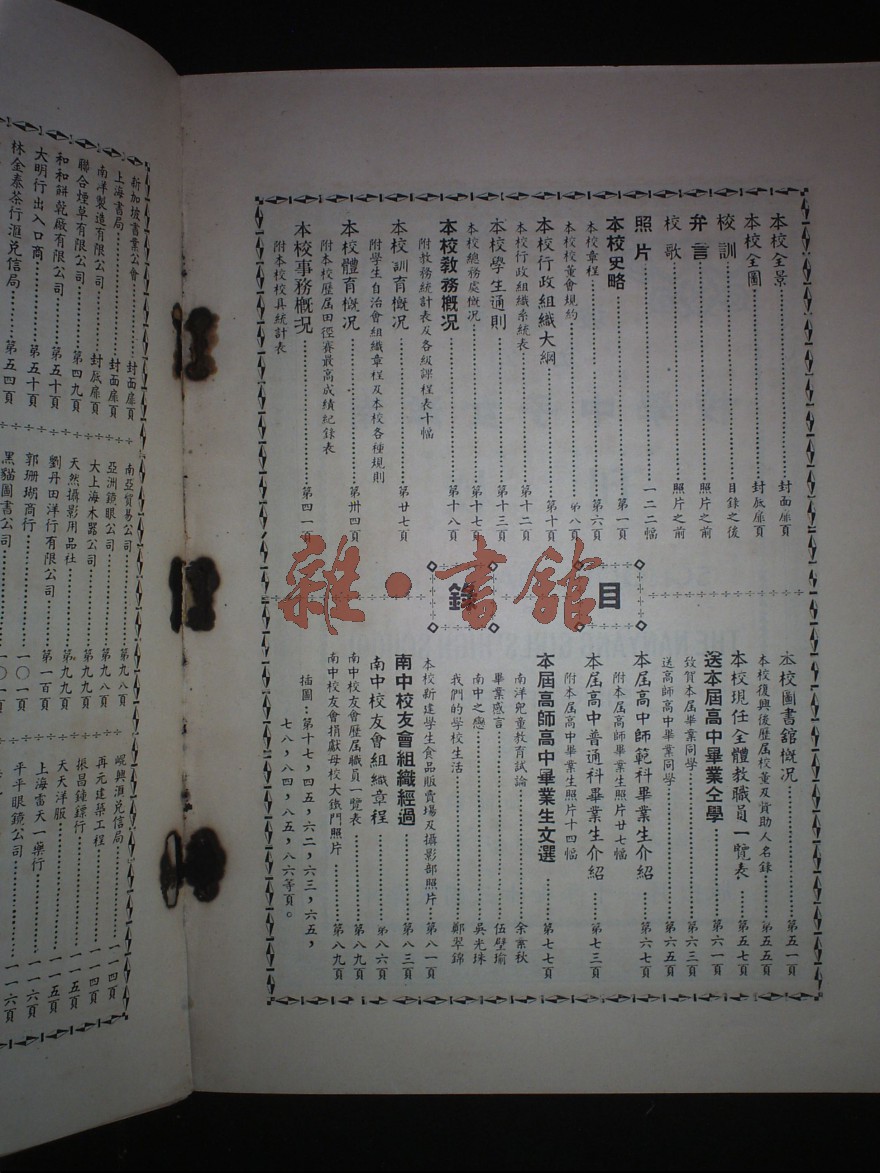 目錄
本校全景……封面扉頁
本校全圖……封底扉頁
校訓……目錄之後
弁言……照片之前
校歌……照片之前
照片……一二二幅
本校史略……第一頁
本校章程……第六頁
本校校董會規約……第八頁
本校行政組織大綱……第十頁
本校行政組織系統表……第十二頁
本校學生通則……第十三頁
本校總務處概况……第十七頁
本校敎務概况……第十八頁
附敎務統計表及各級課程表十幅
本校訓育概况……第廿七頁
附學生自治會組織章程及本校各種規則
本校體育概况……第卅四頁
附本校歷屆田徑賽最高成績紀錄表
本校事務概况……第四一頁
附本校校具統計表
本校圖書舘概况……第五一頁
本校復興後歷屆校董及資助人名錄……第五五頁
本校現任全體敎職員一覽表……第五七頁
送本屆高中畢業仝學……第六一頁
致賀本屆畢業同學……第六三頁
送高師高中畢業同學……第六五頁
本屆高中師範科畢業生介紹……第六七頁
附本屆高師畢業生照片廿七幅
本屆高中普通科畢業生介紹……第七三頁
附本屆高中畢業生照片十四幅
本屆高師高中畢業生文選……第七七頁
南洋兒童敎育試論……余葉秋
畢業感言……伍璧瑜
南中之戀……吳光珠
我們的學校生活……鄭翠錦
本校新建學生食品販賣場及攝影部照片……第八一頁
南中校友會組織經過……第八三頁
南中校友會組織章程……第八六頁
南中校友會歷屆職員一覽表……第八九頁
南中校友會捐獻母校大鐵門照片……第八九頁
插圖：第十七，四五，六二，六三，六五，
七八，八四，八五，八六等頁。
新加坡書業公會……封面扉頁
上海書局……封面扉頁
南洋製造有限公司……封底扉頁
聯合煙草有限公司……第四九頁
和和餅乾廠有限公司……第五十頁
大明行出入口商……第五十頁
林金泰茶行滙兌信局……第五四頁
南亞貿易公司……第九八頁
亞洲鏡眼公司……第九八頁
大上海木器公司……第九九頁
天然攝影用品社……第九九頁
劉丹田洋行有限公司……第一百頁
郭珊瑚商行……一〇一頁
黑貓圖書公司……一〇一頁
崐興滙兌信局……一一四頁
再元建築工程……一一四頁
振昌鐘鏢行……一一五頁
天天洋服……一一五頁
上海雷天一藥行……一一六頁
平平眼鏡公司……一一六頁
雜·書舘